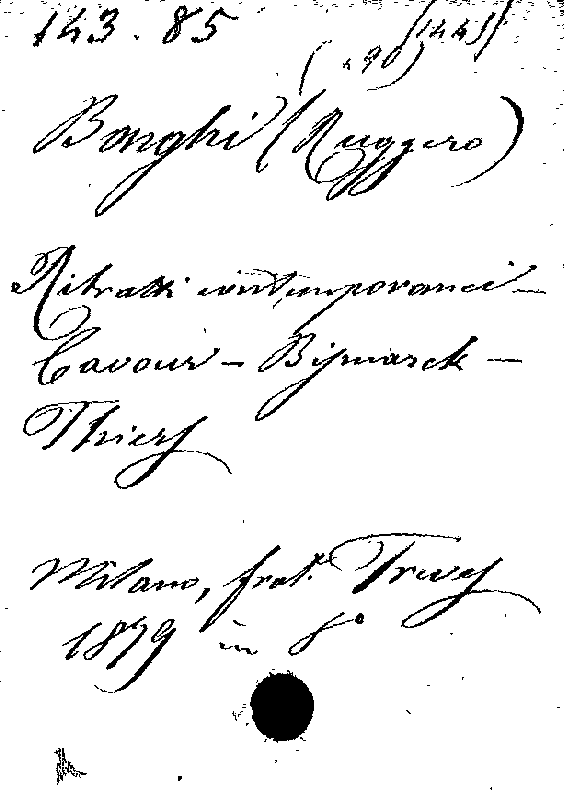 143.85
Bonghi (Ruggero)
Ritratti contemporanei -
Cavour - Bismarck -
Thiers
Milano, frat. Treves
1879 in 8°